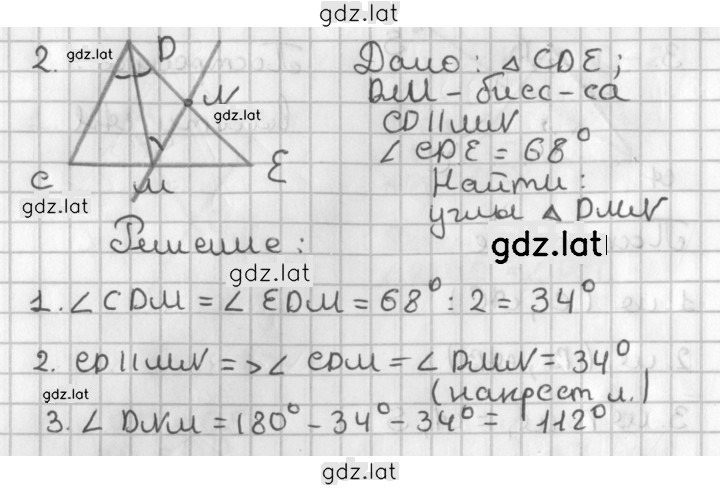 gdz.lat
2.
gdz.lat
D
N
gdz.lat
C
M
E
gdz.lat
Дано: △CDE;
DM - бисс-са
CD||MN
∠CDE = 68°
Найти:
углы △DMN
gdz.lat
Решение:
gdz.lat
1. ∠CDM = ∠EDM = 68° : 2 = 34°
2. CD||MN => ∠CDM = ∠DMN = 34°
(накрест л.)
gdz.lat
3. ∠DNM = 180° - 34° - 34° = 112°
gdz.lat